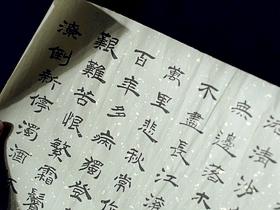 清沙
無邊落木
不盡長江
萬里悲秋常
百年多病獨登
艱難苦恨繁霜鬢
潦倒新停濁酒